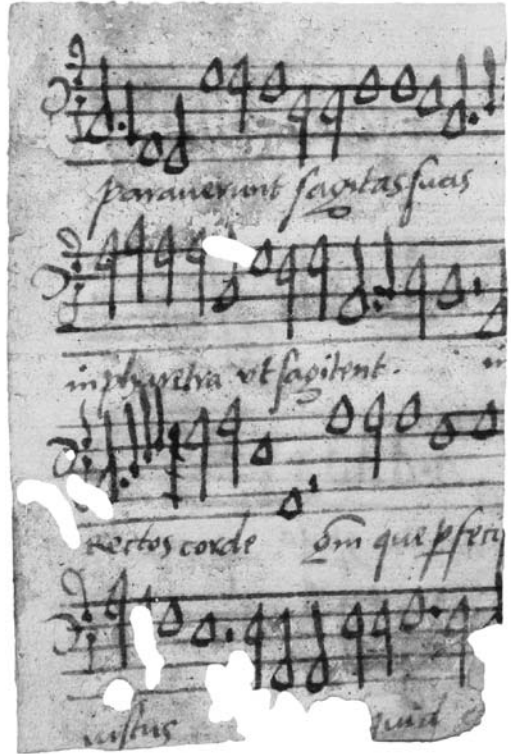 parauerunt sagitas suas
in pharetra vt sagitent. in
Rectos corde qm que perfeci
iustus quid